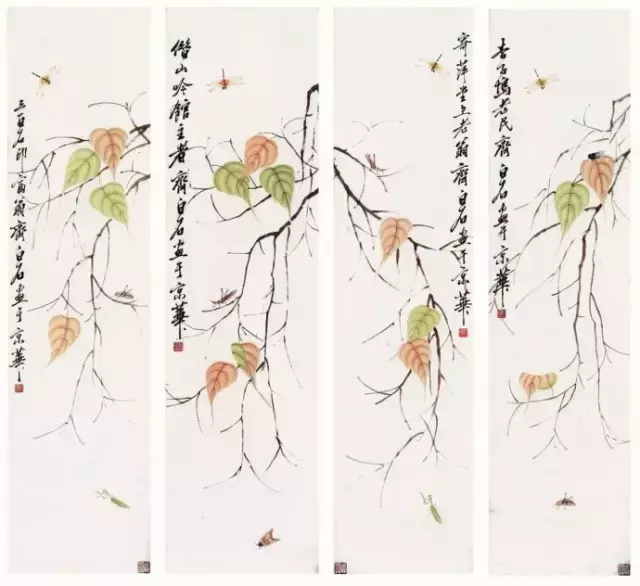 杏子塢老民齊白石画于京華
寄萍堂上老翁齊白石画于京華
借山吟館主者齊白石画于京華
三百石印富翁齊白石画于京華